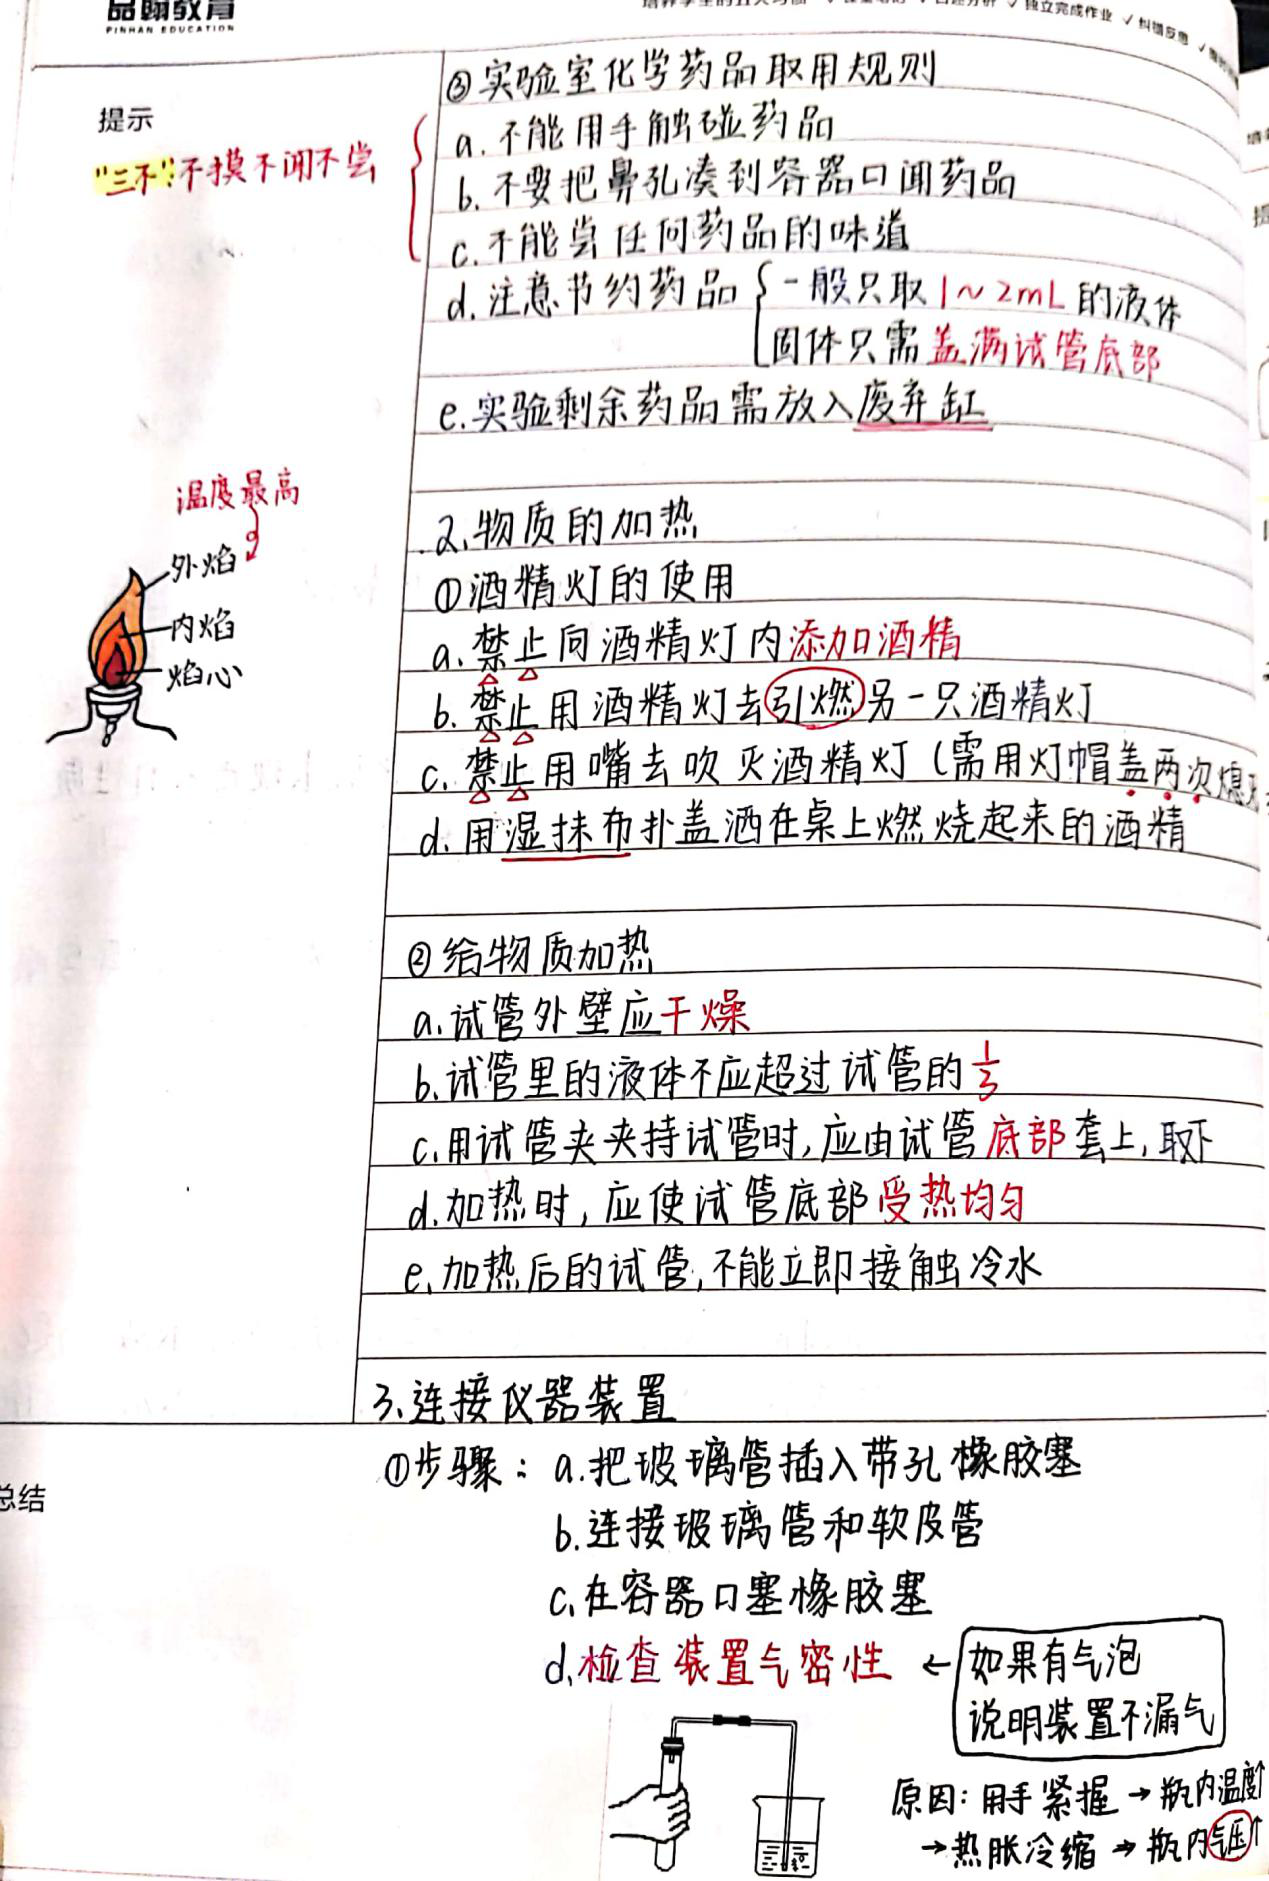 品翰教育
PINHAN EDUCATION
独立完成作业 ✓ 纠错反思
提示
"三不":不摸不闻不尝
③实验室化学药品取用规则
a.不能用手触碰药品
b.不要把鼻孔凑到容器口闻药品
c.不能尝任何药品的味道
d.注意节约药品 一般只取1~2mL的液体
固体只需盖满试管底部
e.实验剩余药品需放入废弃缸
温度最高
外焰
内焰
焰心
2.物质的加热
①酒精灯的使用
a.禁止向酒精灯内添加酒精
b.禁止用酒精灯去引燃另一只酒精灯
c.禁止用嘴去吹灭酒精灯(需用灯帽盖两次熄灭
d.用湿抹布扑盖洒在桌上燃烧起来的酒精
②给物质加热
a.试管外壁应干燥
b.试管里的液体不应超过试管的1/3
c.用试管夹夹持试管时,应由试管底部套上,取下
d.加热时,应使试管底部受热均匀
e.加热后的试管,不能立即接触冷水
3.连接仪器装置
总结
①步骤:a.把玻璃管插入带孔橡胶塞
b.连接玻璃管和软皮管
c.在容器口塞橡胶塞
d.检查装置气密性 ← 如果有气泡
说明装置不漏气
原因:用手紧握→瓶内温度↑
→热胀冷缩→瓶内气压↑